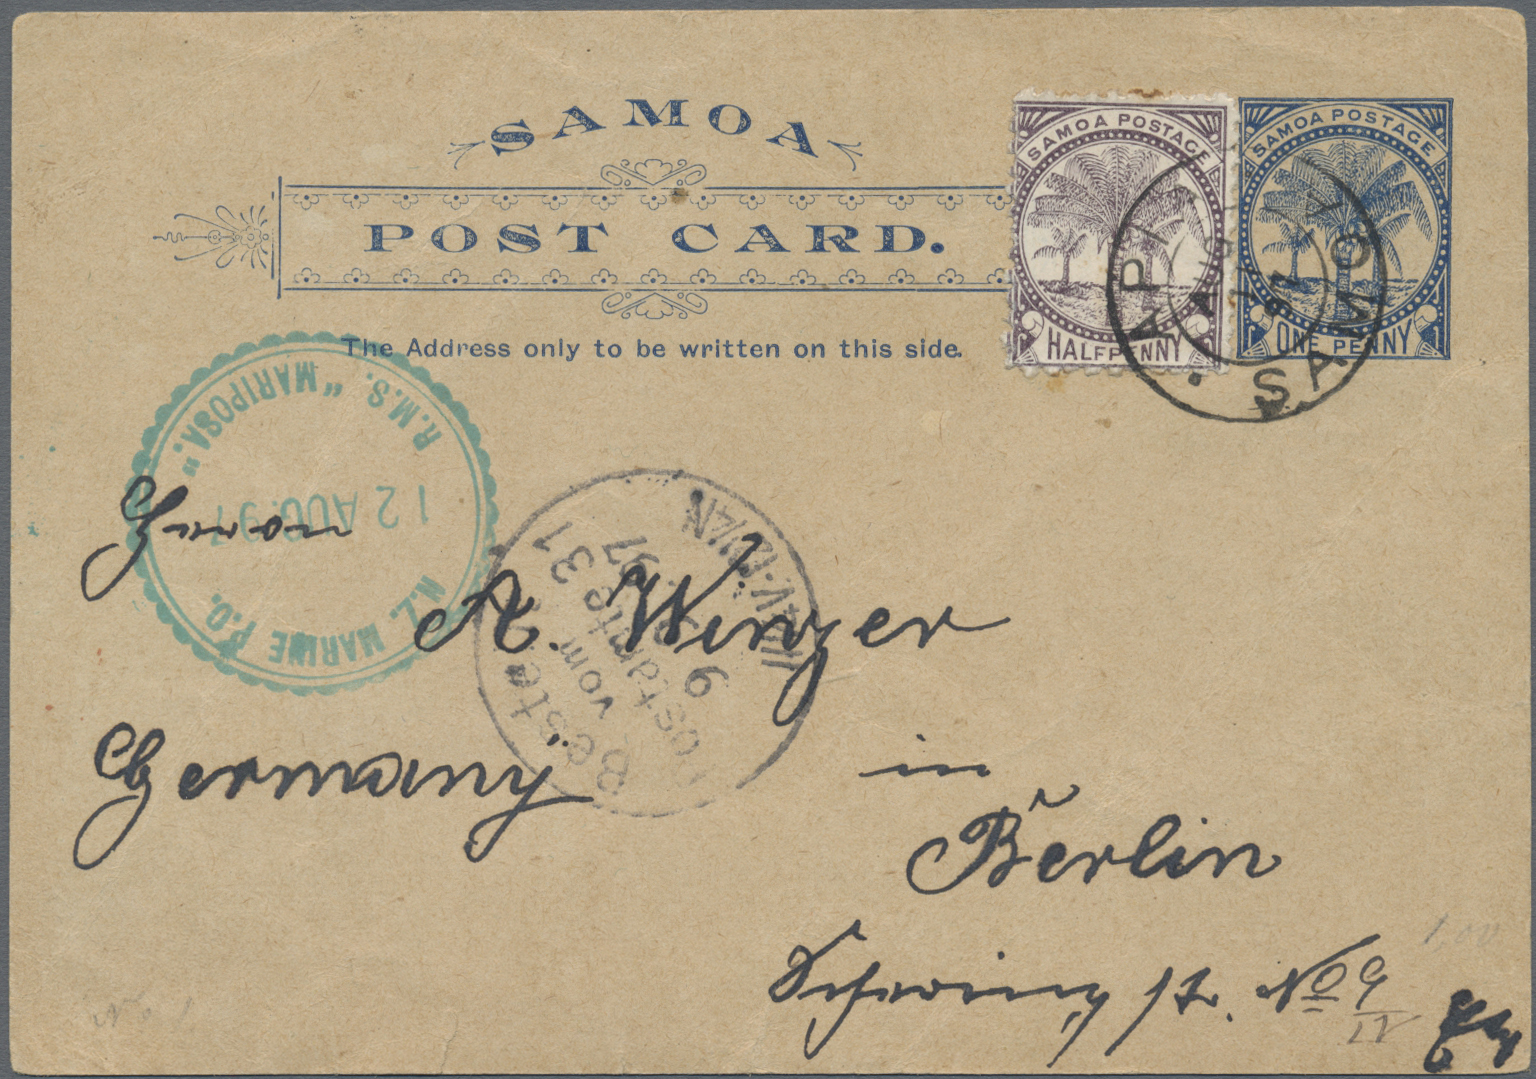 SAMOA
POST CARD.
The Address only to be written on this side.
SAMOA POSTAGE
HALFPENNY
SAMOA POSTAGE
ONE PENNY
APIA SAMOA
AUG
97
R.M.S. "MARIPOSA."
12 AUG. 97
N.Z. MARINE P.O.
Bestellt
vom
Postamte 31
9 97
Herrn
A. Winzer
Germany
in
Berlin
str. No 9
IV